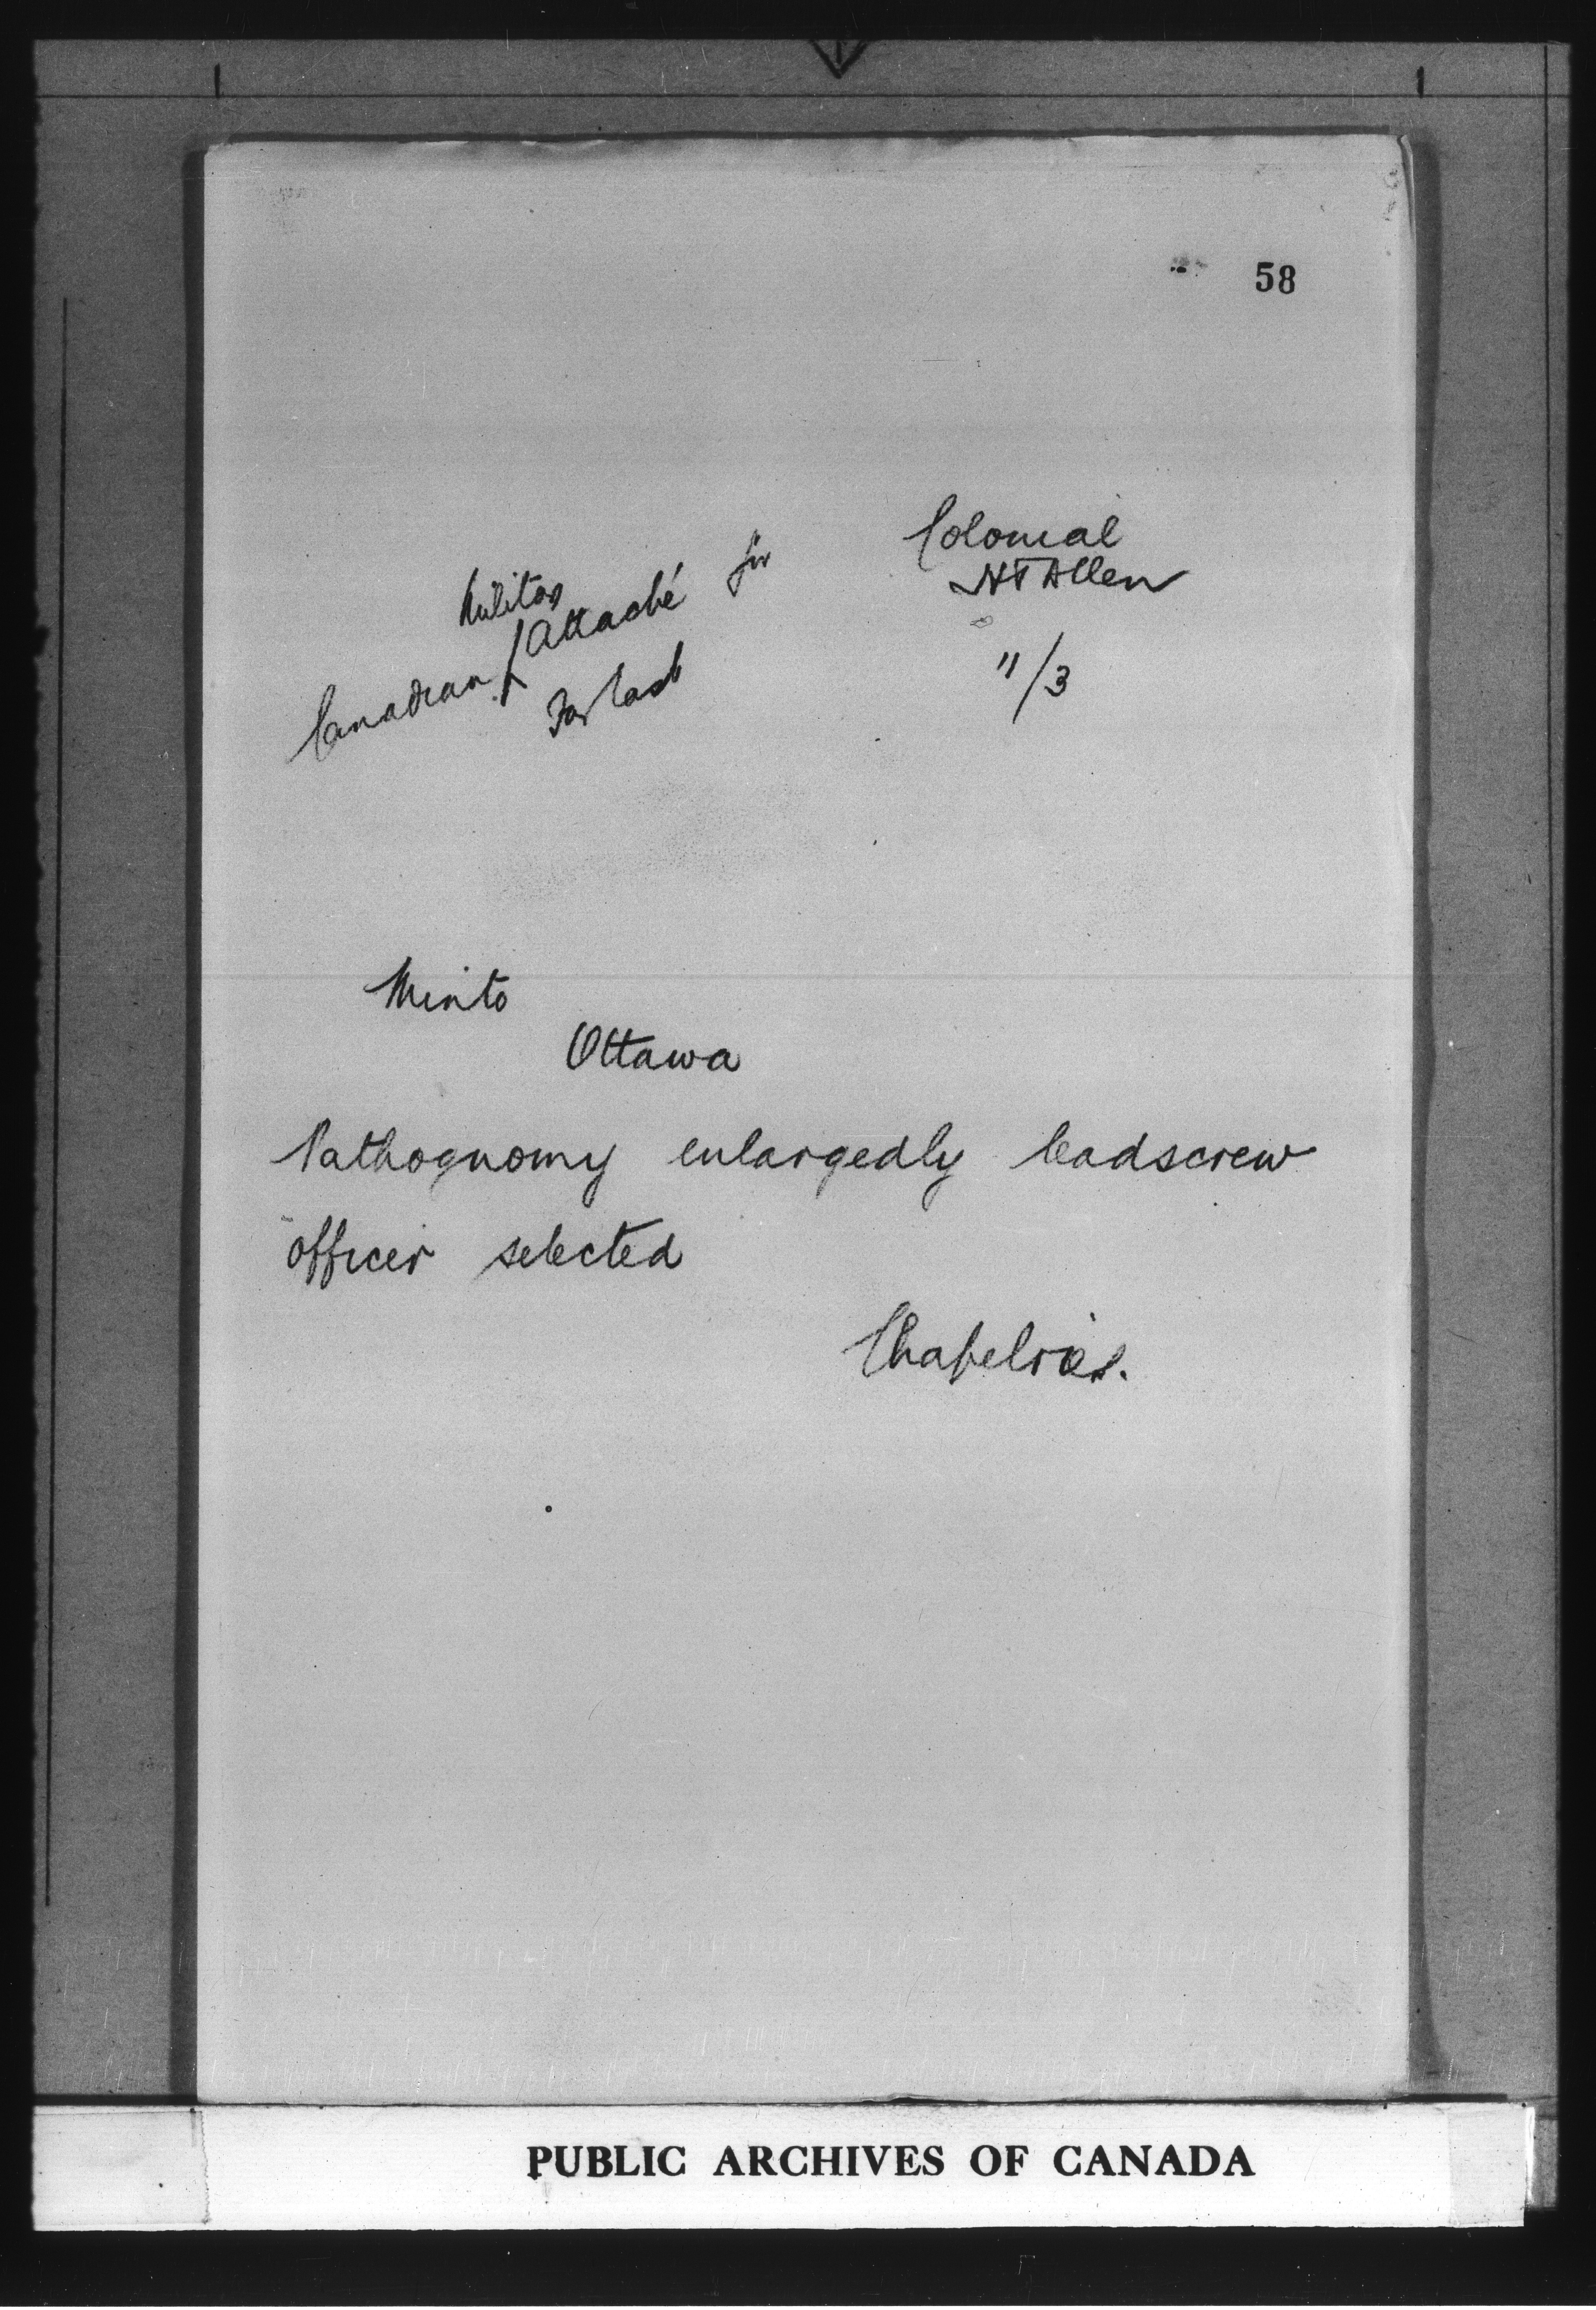 58
Colonial
H T Allen
11/3
Military
Canadian Attaché for
Far East
Minto
Ottawa
Pathognomy enlargedly leadscrew
officer selected
Chapelries.
PUBLIC ARCHIVES OF CANADA